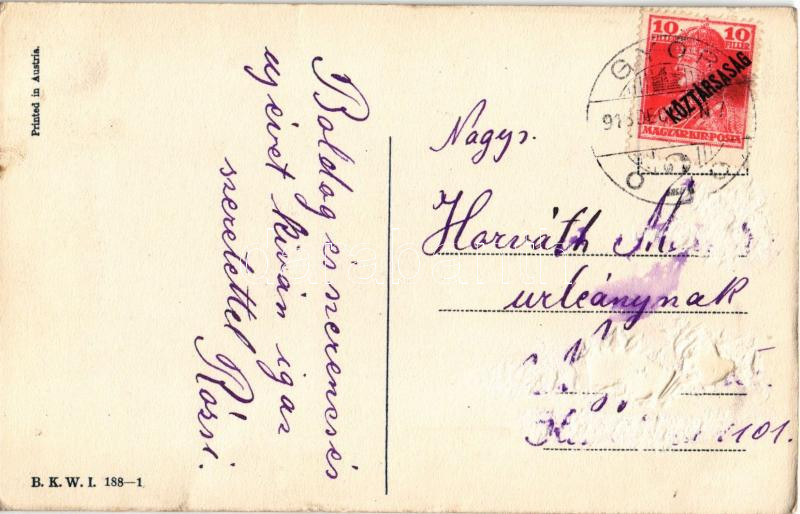 Printed in Austria.
Boldog és szerencsés
ujévet kiván igaz
szeretettel Rózsi.
B. K. W. I. 188—1
10 10
FILLÉR FILLÉR
KÖZTÁRSASÁG
MAGYAR KIR. POSTA
GYŐR
Nagys.
Horváth
urleánynak
1101.